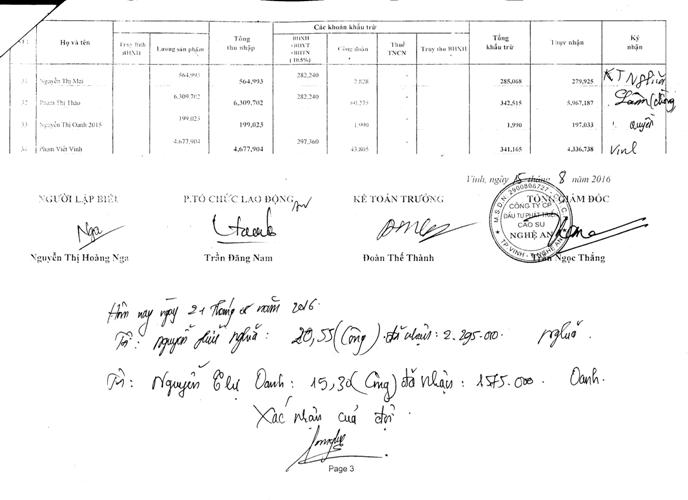 Các khoản khấu trừ
Họ và tên Truy lĩnh BHXH Lương sản phẩm Tổng thu nhập BHXH +BHYT +BHTN (10.5%) Công đoàn Thuế TNCN Truy thu BHXH Tổng khấu trừ Thực nhận Ký nhận
31 Nguyễn Thị Mai 564,993 564,993 282,240 2,828 - 285,068 279,925
32 Phạm Thị Thảo 6,309,702 6,309,702 282,240 60,275 - 342,515 5,967,187
33 Nguyễn Thị Oanh 2015 199,023 199,023 1,990 - 1,990 197,033 quyền
34 Phạm Viết Vinh 4,677,904 4,677,904 297,360 43,805 - 341,165 4,336,738 Vinh
Vinh, ngày 15 tháng 8 năm 2016
NGƯỜI LẬP BIỂU P.TỔ CHỨC LAO ĐỘNG KẾ TOÁN TRƯỞNG TỔNG GIÁM ĐỐC
M.S.D.N 2900896727
CÔNG TY CP
ĐẦU TƯ PHÁT TRIỂN
CAO SU
NGHỆ AN
TP.VINH - T.NGHỆ AN
Nga
Nguyễn Thị Hoàng Nga Trần Đăng Nam Đoàn Thế Thành Trần Ngọc Thắng
Hôm nay ngày 21 tháng 8 năm 2016.
Tôi: Nguyễn Hữu Nghĩa: 20,55 (Công) đã nhận: 2.295.000. nghĩa.
Tôi: Nguyễn Thị Oanh: 15,30 (Công) đã nhận: 1575.000. Oanh.
Xác nhận của đội.
Page 3